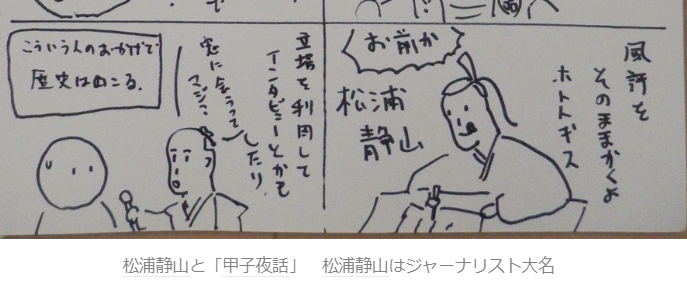 風評を
そのままかくよ
ホトトギス
お前か
松浦
静山
立場を利用して
インタビューとかを
したり
に会うって
マジ
こういう人のおかげで
歴史はのこる。
松浦静山と「甲子夜話」 松浦静山はジャーナリスト大名